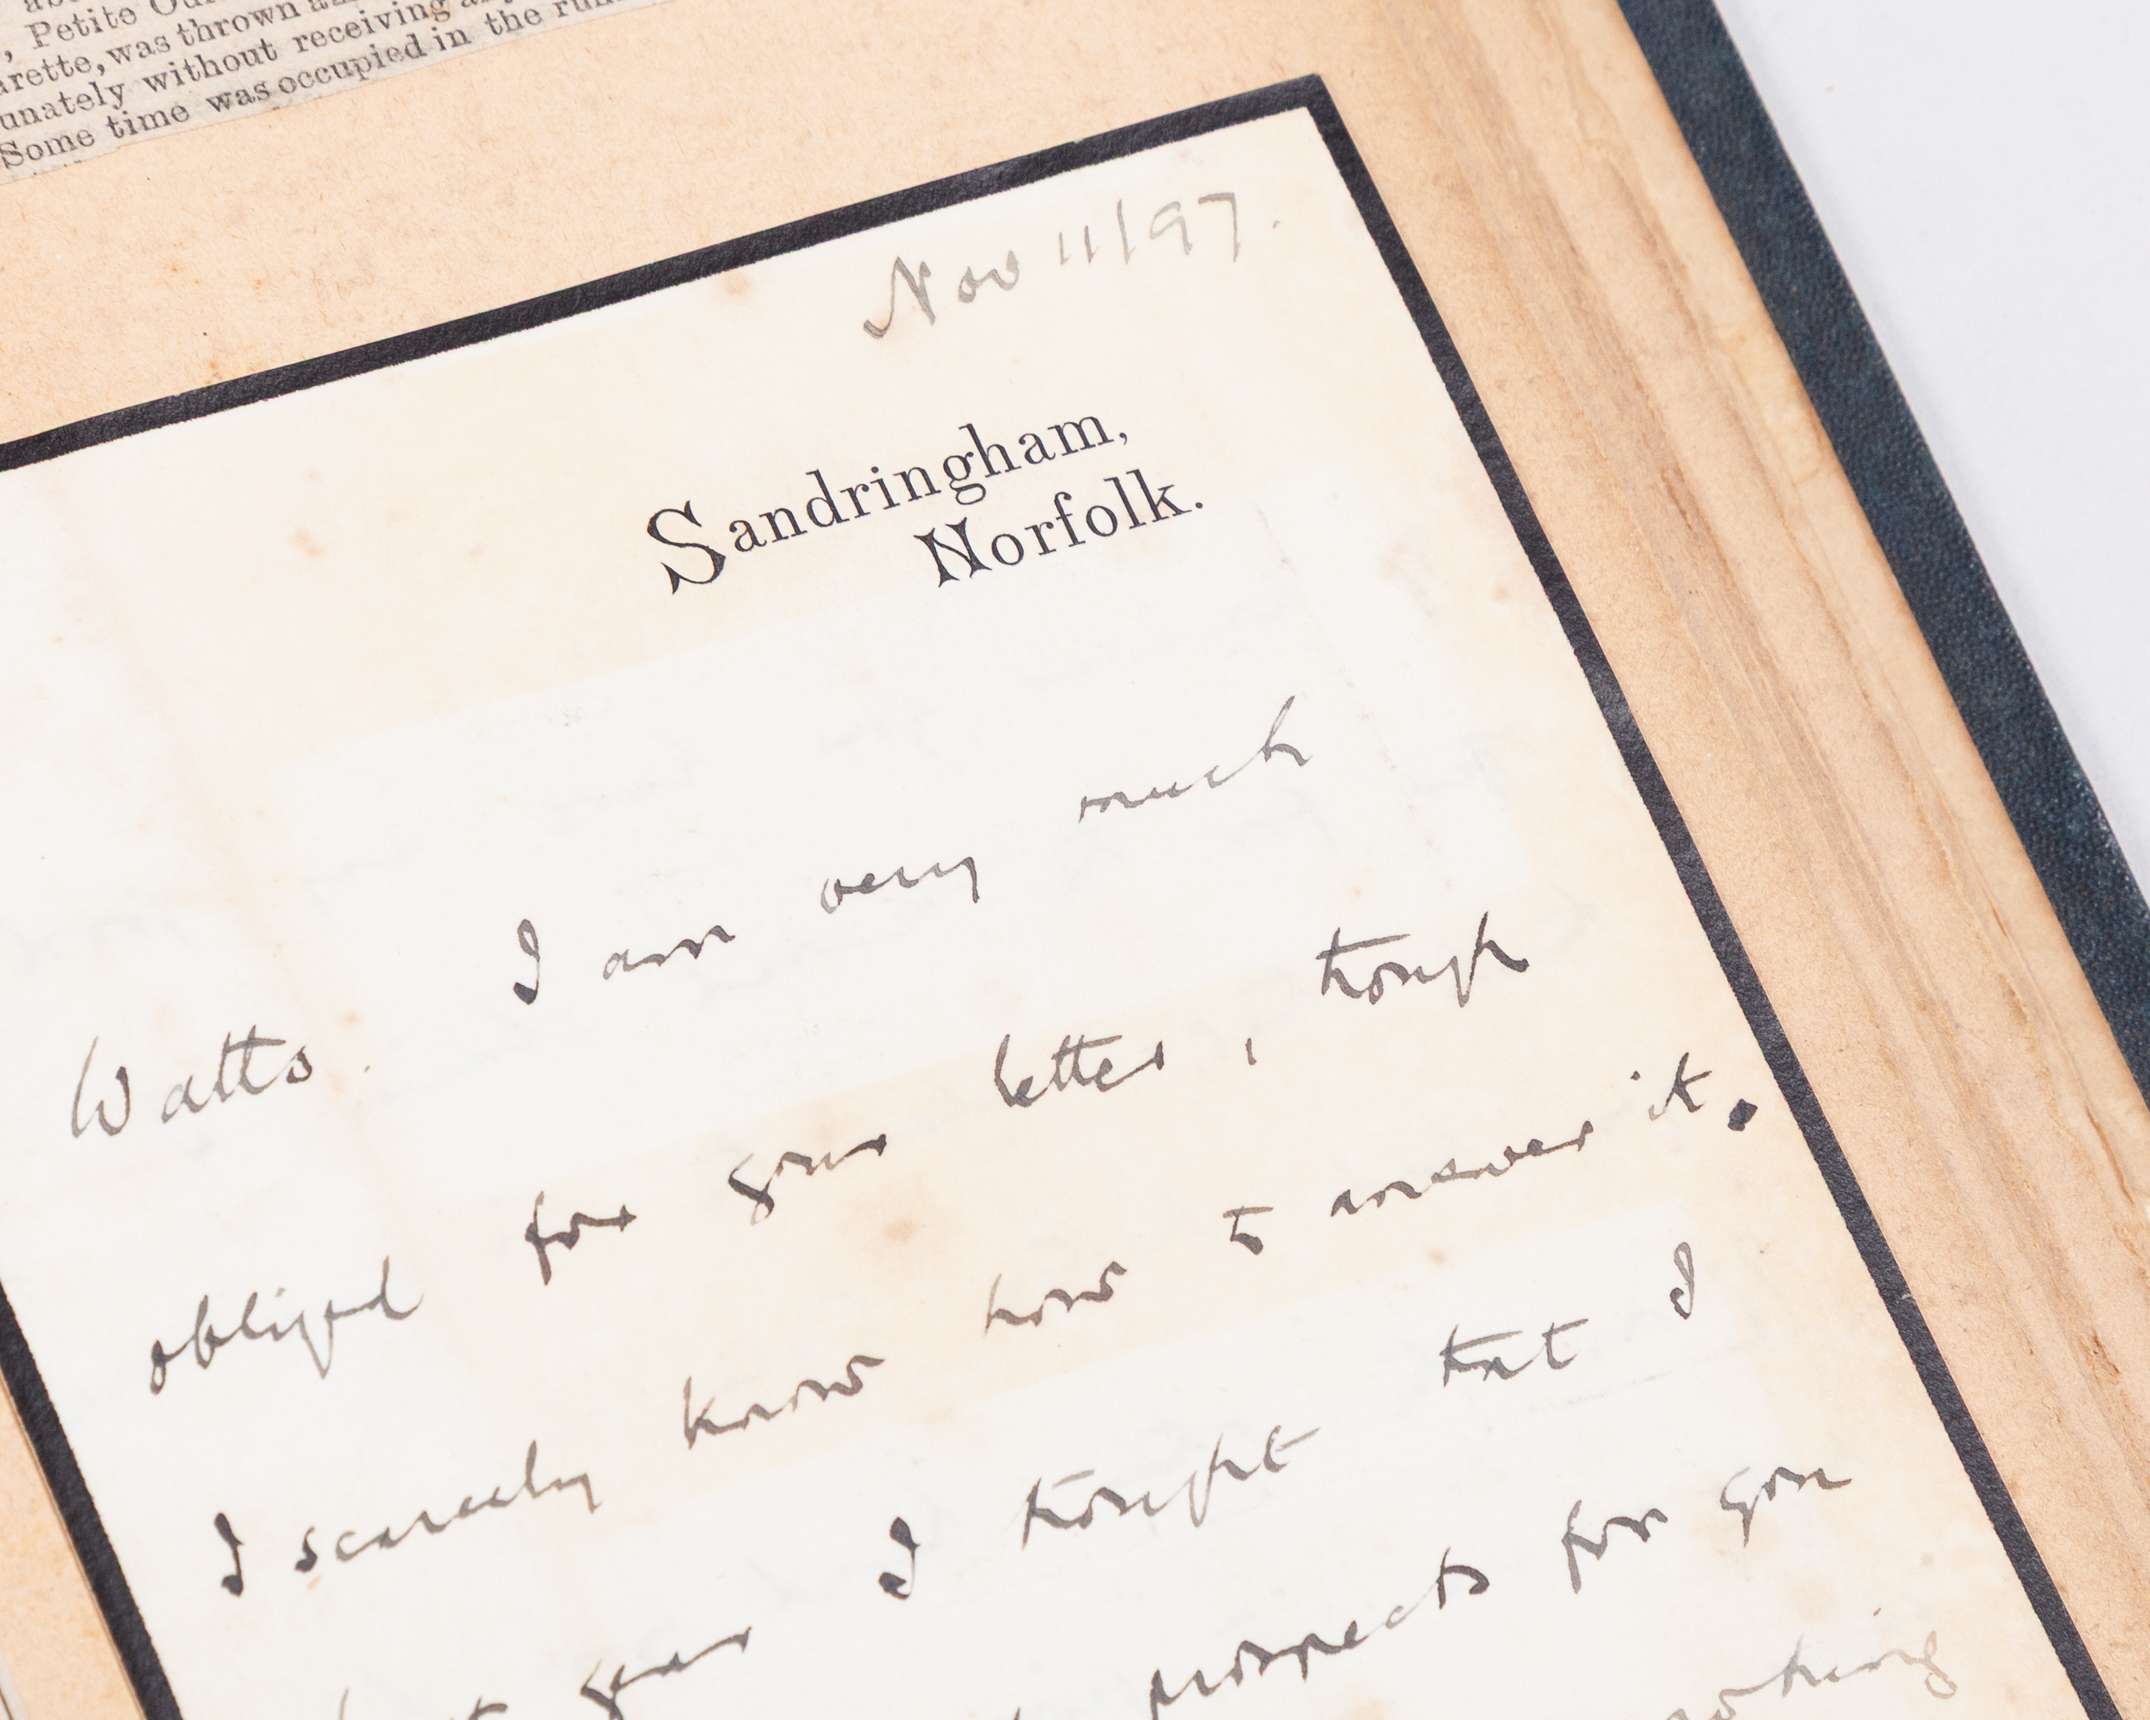 , Petite
arette, was thrown
unately without receiving
Some time was occupied in the
Nov 11/97.
Sandringham,
Norfolk.
I am very much
Watts.
obliged for your letter, though
I scarcely know how to answer it.
year I thought that I
prospects for you
nothing